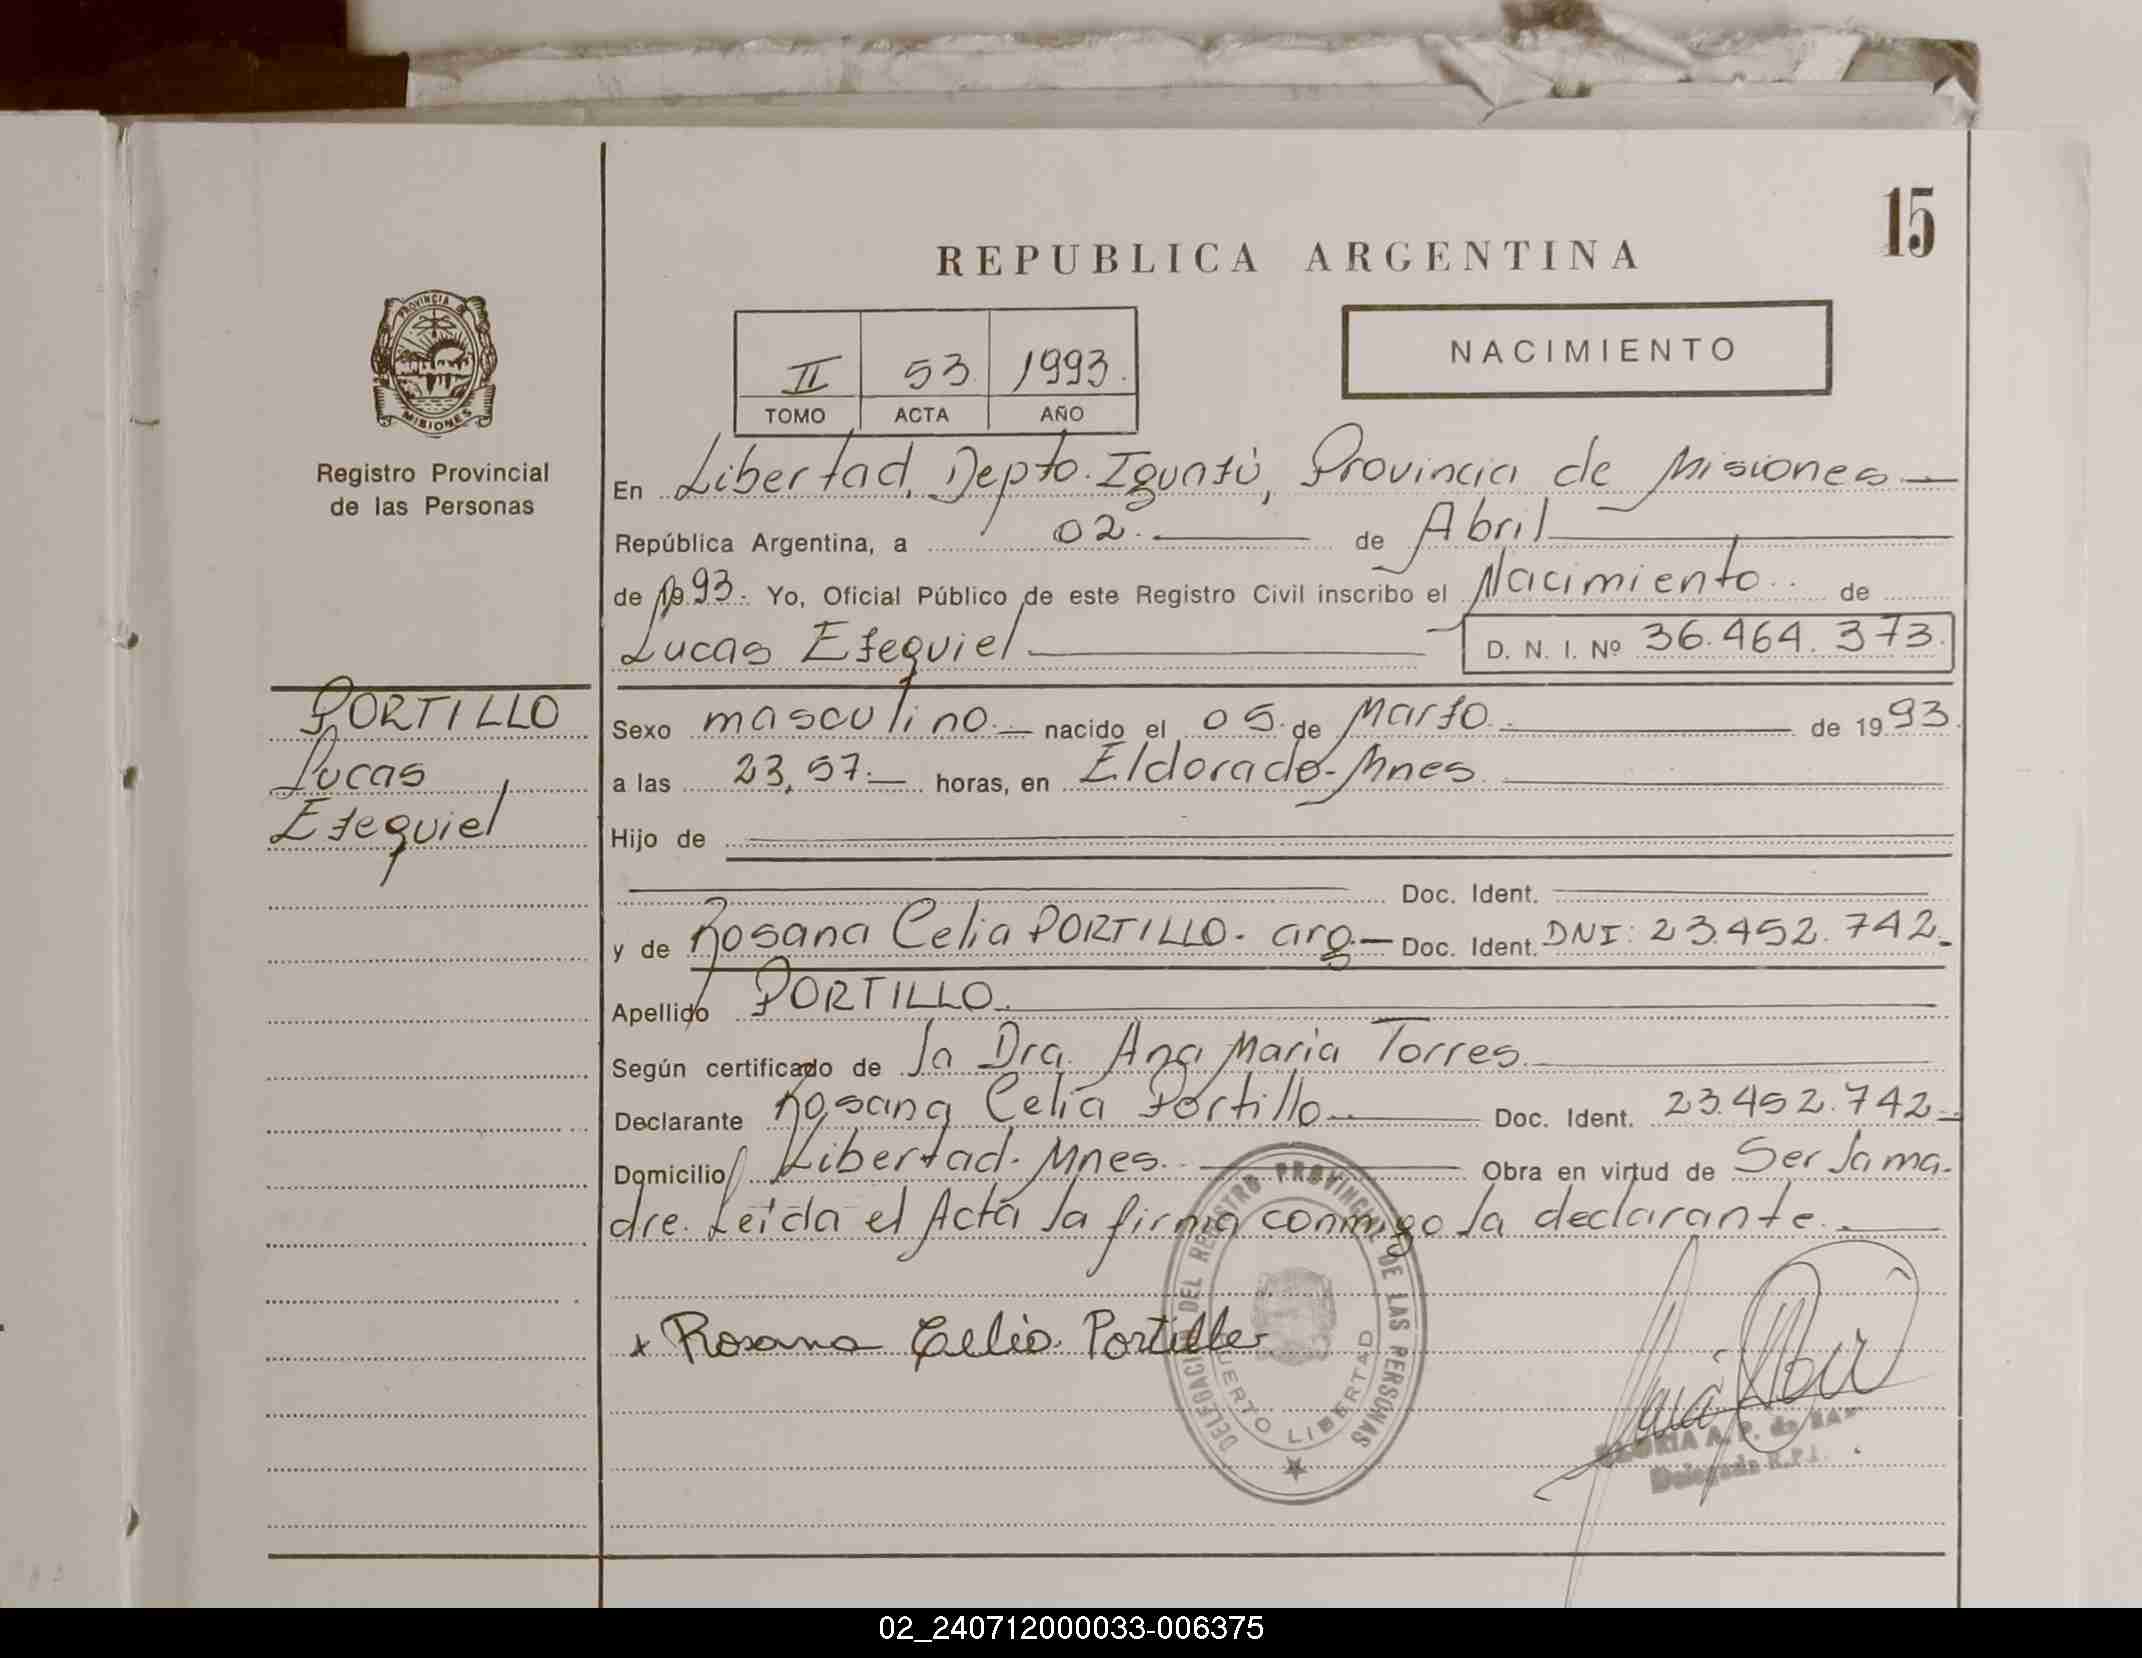 15
REPUBLICA ARGENTINA
PROVINCIA
MISIONES
Registro Provincial
de las Personas
II 53. 1993.
TOMO ACTA AÑO
NACIMIENTO
En Libertad, Depto. Iguazú, Provincia de Misiones
República Argentina, a 02. de Abril
de 1993. Yo, Oficial Público de este Registro Civil inscribo el Nacimiento de
Lucas Ezequiel D. N. I. Nº 36.464.373.
PORTILLO
Lucas
Ezequiel
Sexo masculino. nacido el 05. de Marzo. de 1993.
a las 23,57. horas, en Eldorado-Mnes.
Hijo de
Doc. Ident.
y de Rosana Celia PORTILLO. arg. Doc. Ident. DNI: 23.452.742.
Apellido PORTILLO.
Según certificado de la Dra. Ana Maria Torres.
Declarante Rosana Celia Portillo. Doc. Ident. 23.452.742.
Domicilio Libertad. Mnes. Obra en virtud de Ser la ma-
dre. Leída el Acta la firma conmigo la declarante.
x Rosana Celia Portillo
DELEGACION DEL REGISTRO PROVINCIAL DE LAS PERSONAS
PUERTO LIBERTAD
A. P. de
Delegada R.P.
02_240712000033-006375